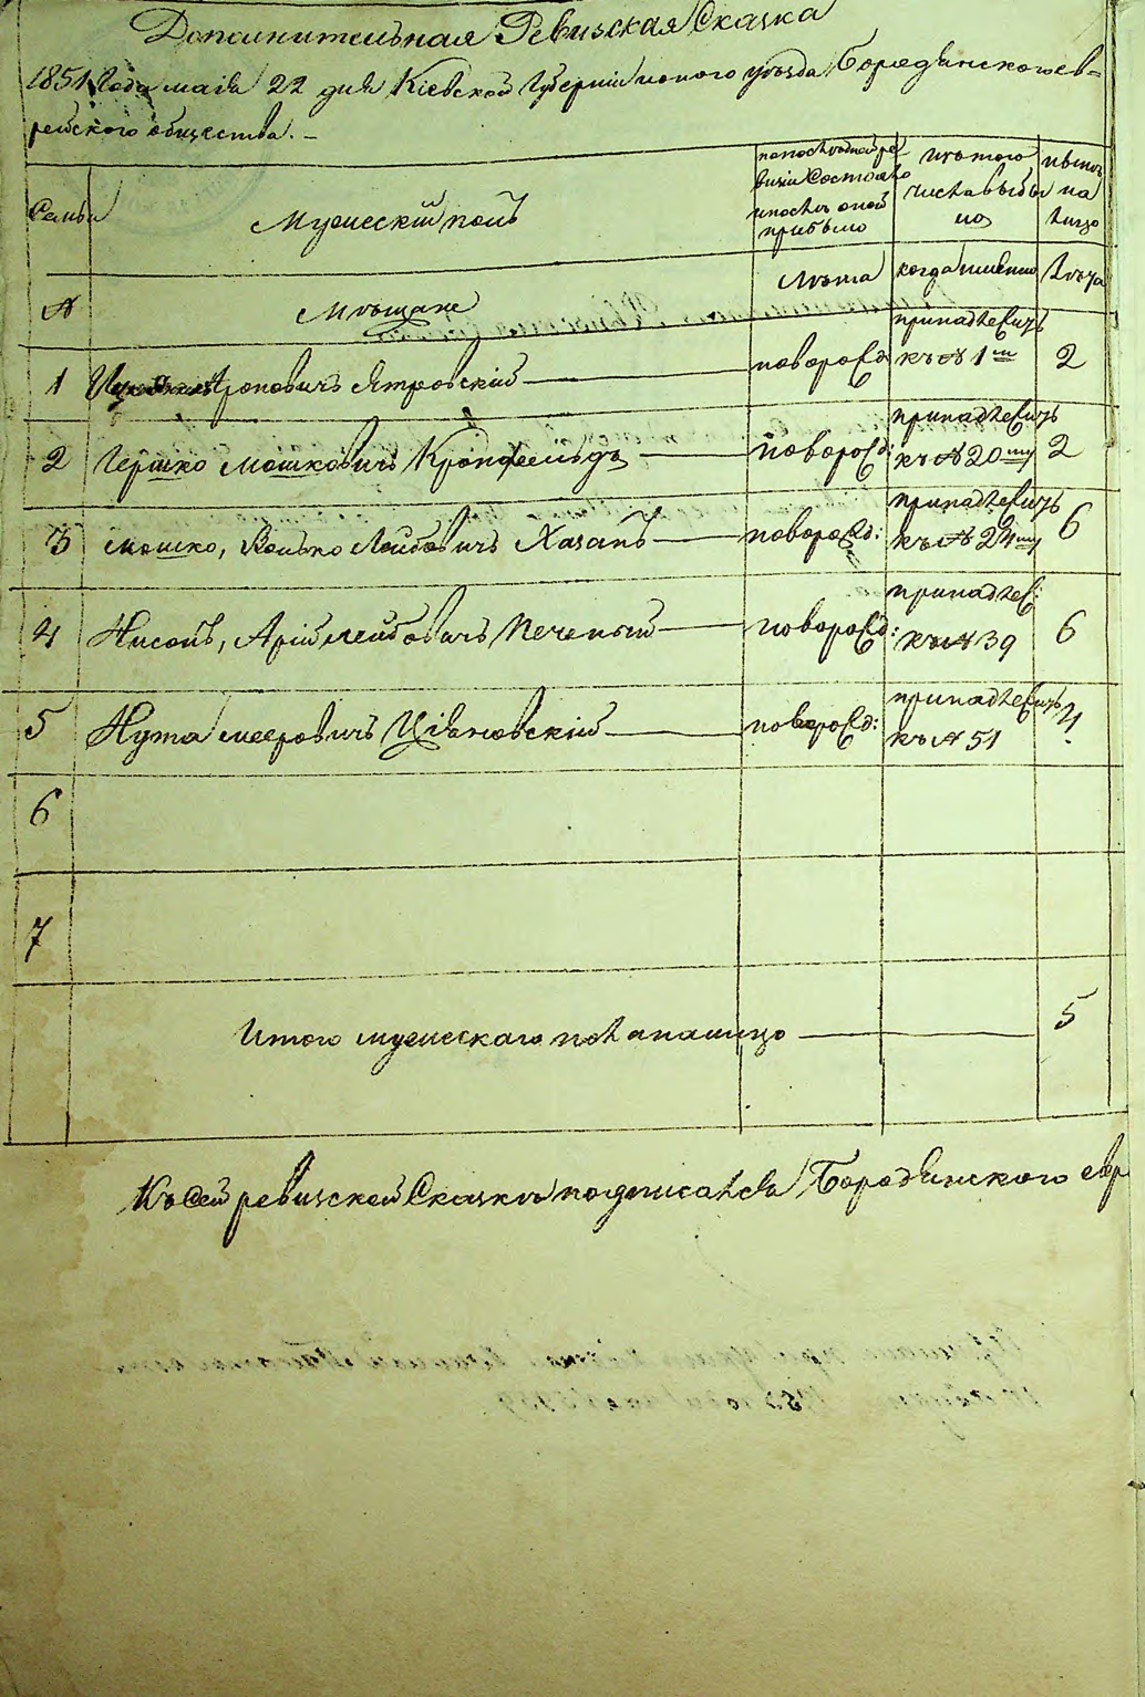 Дополнительная Ревизская Сказка
1851 Года маiя 22 дня Кiевской Губернiи уѣзда Бородянского ев-
рейского общества. -
Семьи
Мужескiй полъ
по последней ре
визiи Состояло
и послѣ оной
прибыло
Изъ того
числа выбы
ло
нынѣ
на
лицо
№
Мѣщане
Лѣта
когда именно
Лѣта
1 Ароновичъ Ятровскiй новорожд принадлежитъ къ № 1му 2
2 Гершко Мошковичъ Кронфельдъ новорожд: принадлежитъ къ № 20му 2
3 Мошко, Волько Лейбовичъ Хазанъ новорожд: принадлежитъ къ № 24му 6
4 Нисонъ, Арiй Лейбовичъ Печеный новорожд: принадлеж: къ № 39 6
5 Нута Мееровичъ новорожд: принадлежитъ къ № 51 4
6
7
Итого мужескаго пола на лицо 5
Къ Сей ревизской Сказкѣ подписался Бородянского евр